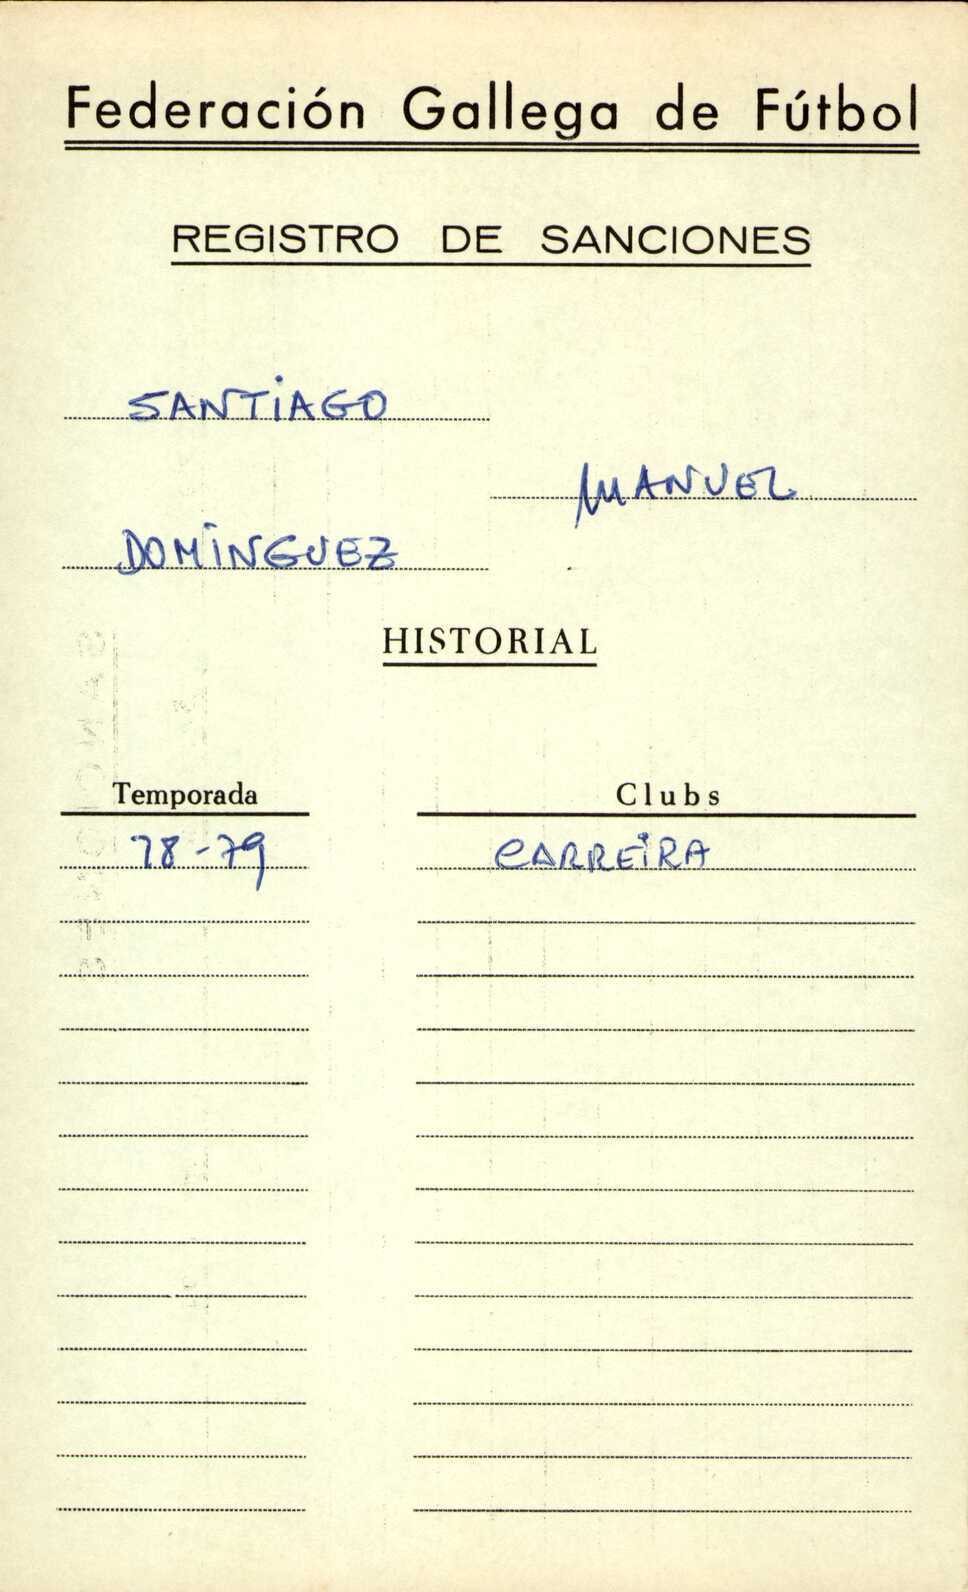 Federación Gallega de Fútbol
REGISTRO DE SANCIONES
SANTIAGO
MANUEL
DOMINGUEZ
HISTORIAL
Temporada Clubs
78-79 CARREIRA